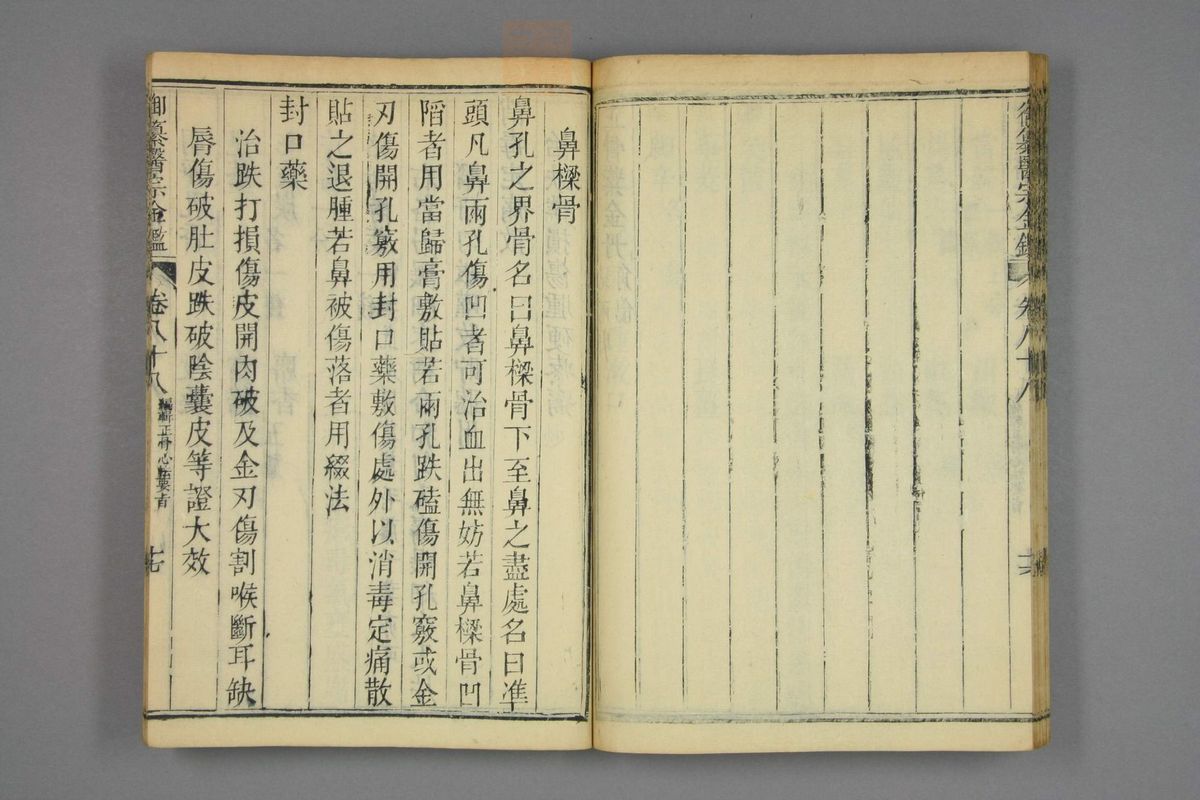 御纂醫宗金鑑 卷八十八 十六
鼻樑骨
鼻孔之界骨名曰鼻樑骨下至鼻之盡處名曰準
頭凡鼻兩孔傷凹者可治血出無妨若鼻樑骨凹
陷者用當歸膏敷貼若兩孔跌磕傷開孔竅或金
刃傷開孔竅用封口藥敷傷處外以消毒定痛散
貼之退腫若鼻被傷落者用綴法
封口藥
治跌打損傷皮開肉破及金刃傷割喉斷耳缺
唇傷破肚皮跌破陰囊皮等證大效
御纂醫宗金鑑 卷八十八 編輯正骨心法要旨 十七